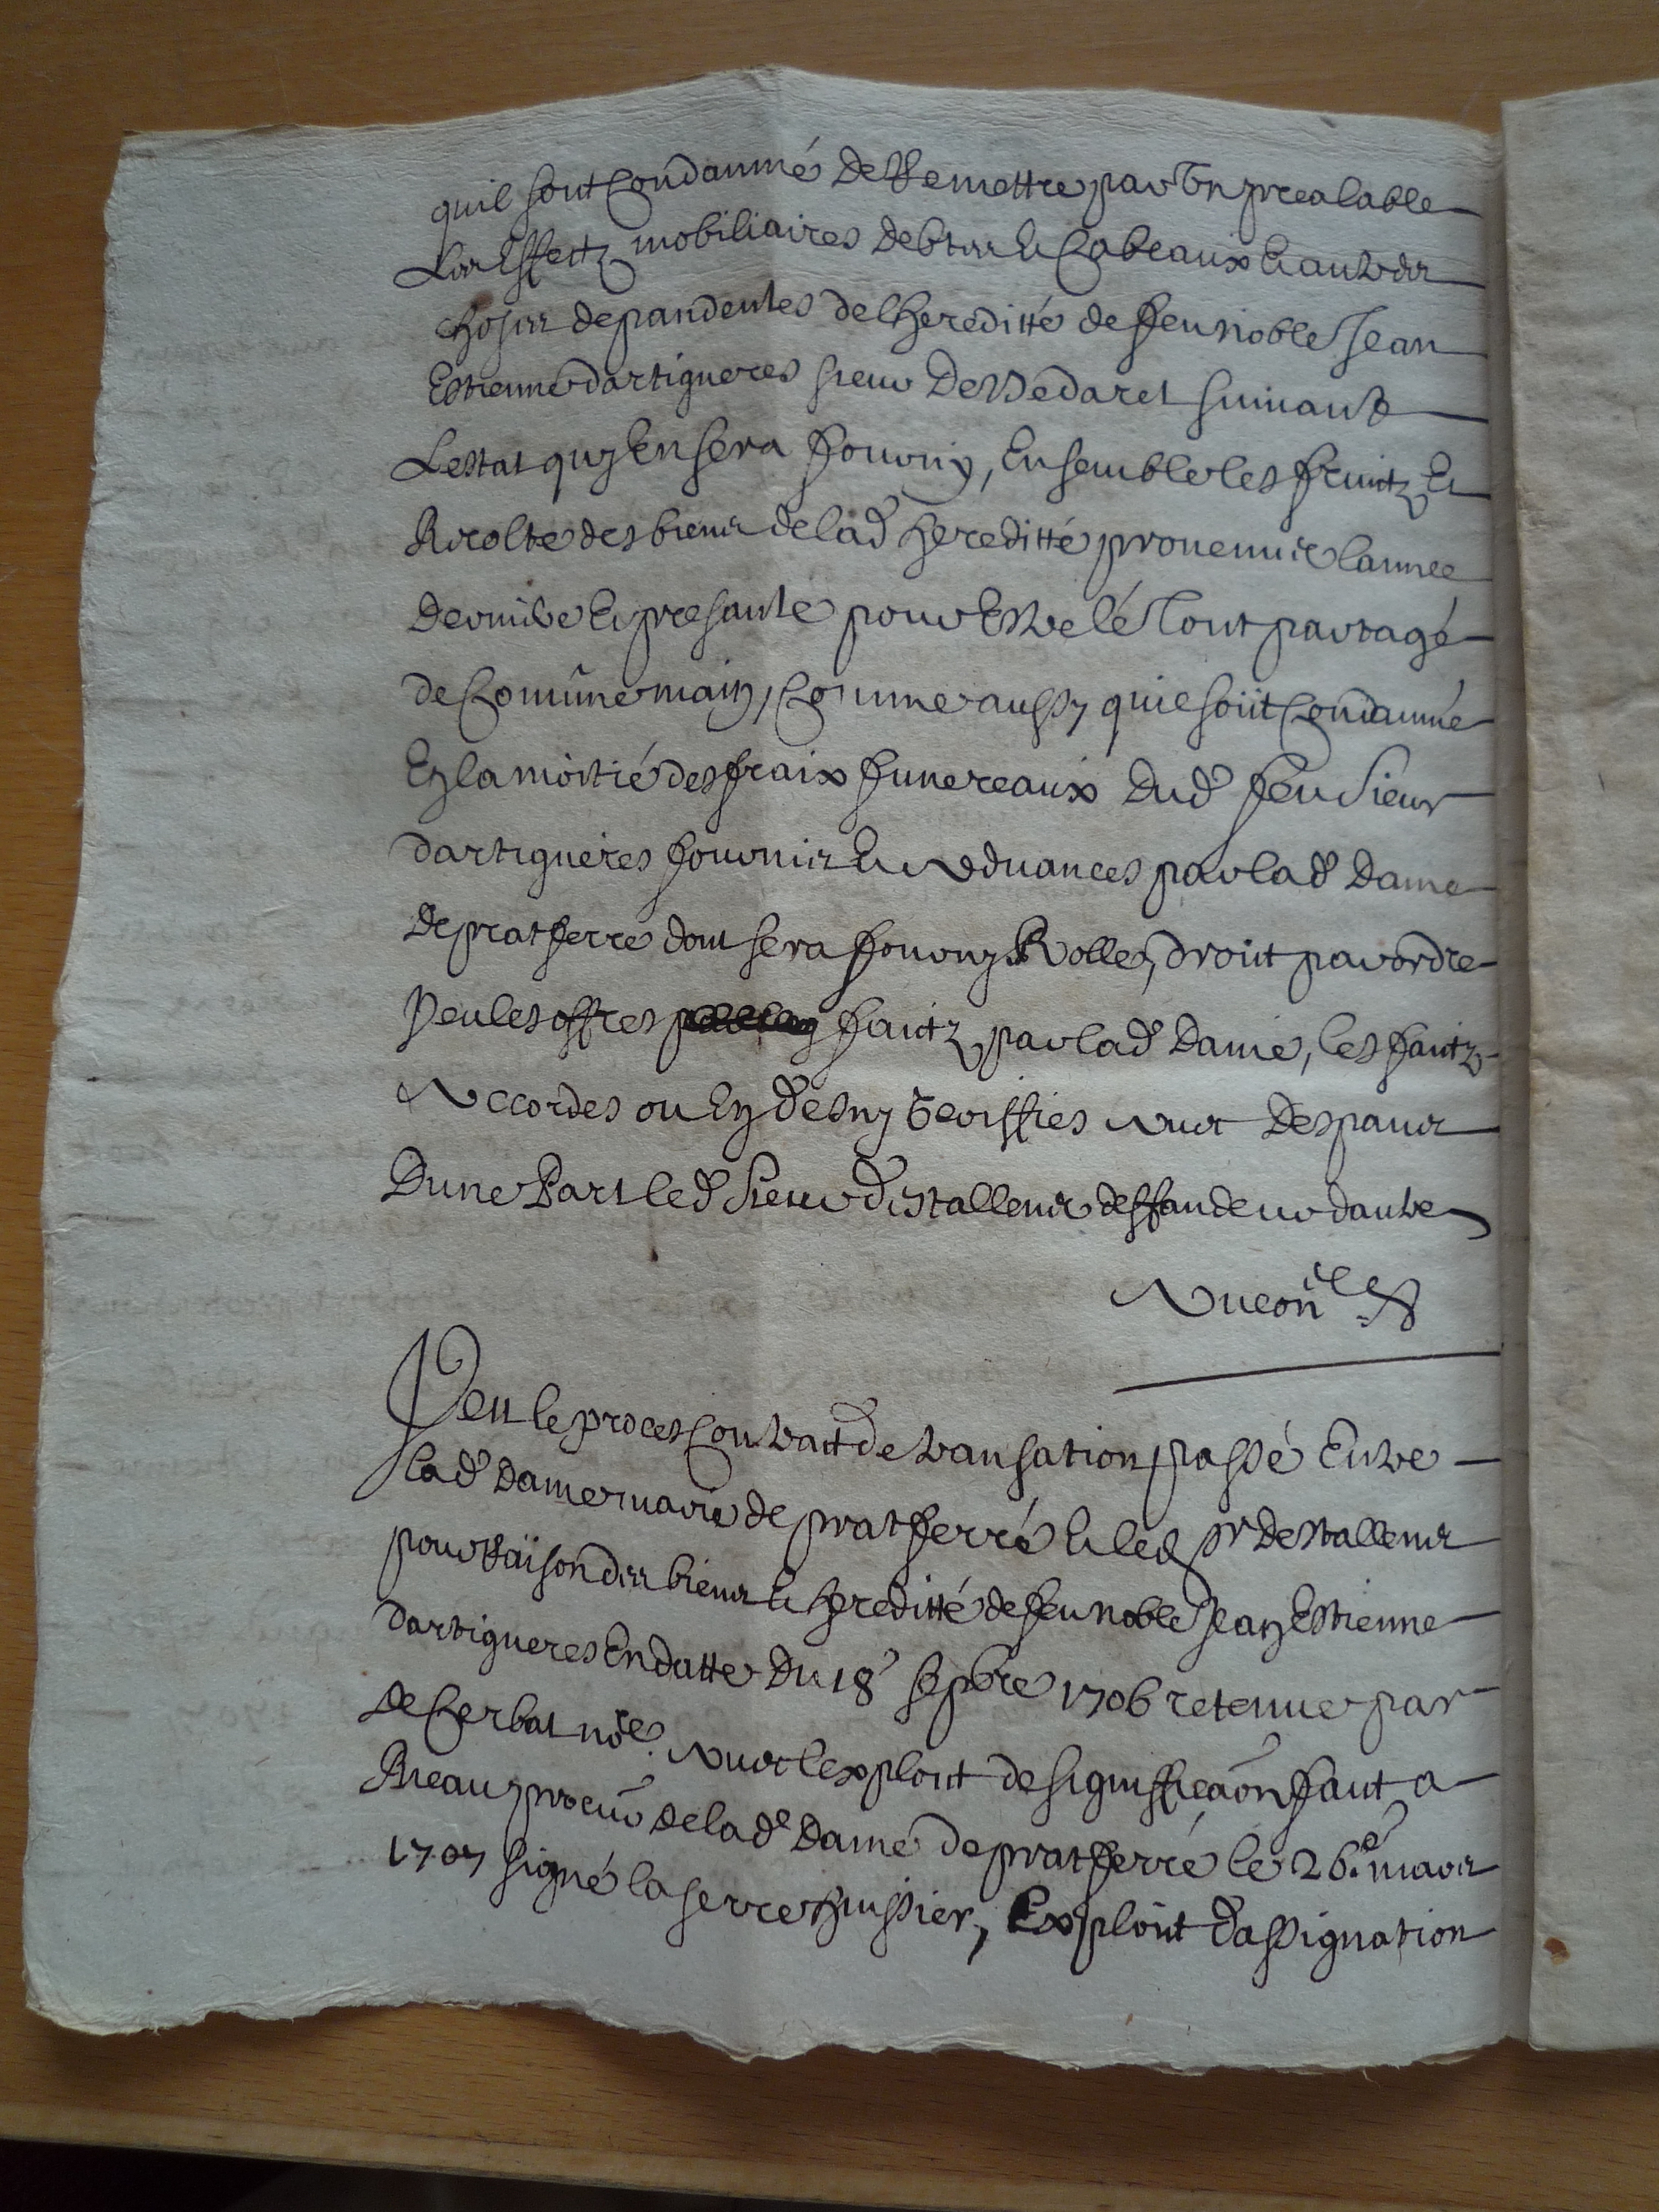 quil soit condamné de Remettre par Un prealable
Les Effectz mobiliaires debtes Et Cabeaux Et autres
choses depandentes de lhereditté de feu noble Jean
Estienne dartigueres sieur De Vedaret suivant
Lestat quy En sera fourny, Ensemble les fruitz Et
Recolte des biens de lad^e hereditté provenus lannee
derniere Et presante pour Estre lé Tout partagé
de Comûne main, Comme aussy quil soit Condamné
En la moitié des fraix funereaux dud^t feu Sieur
dartigueres fournis Et Advances par lad^e Dame
de pratferre dont sera fourny Rolle, droit par ordre
Veu les offres faitz par lad^e Dame, les faitz
Accordes ou En deny Veriffies Avec despans
Dune Part led^t Sieur distallens deffandeur dautre
Veu le proces Contract de transation passé Entre
lad^e Dame marie de pratferré Et led^t s^r destallens
pour Raison des biens Et hereditté de feu noble Jean Estienne
dartigueres En datte Du 18^e sepbre 1706 retenue par
de Cerbat no^re. Avec lexploit de signiffica͠on fait a
Reau procur de lad^e Dame de pratferré le 26^e. mars
1707 signé laserre huissier, Exploit dassignation